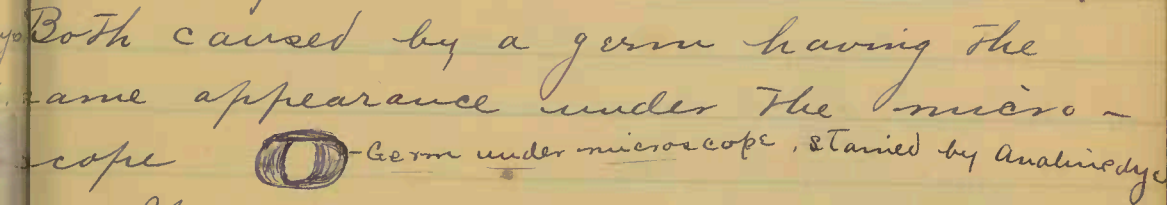 Both caused by a germ having the
same appearance under the micro-
scope -Germ under microscope, stained by Analine dye